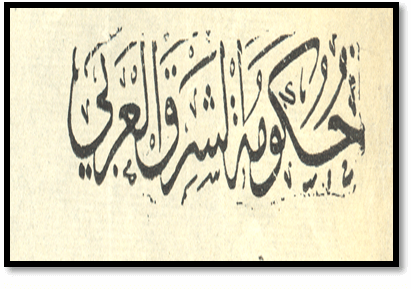 حكومة الشرق العربي